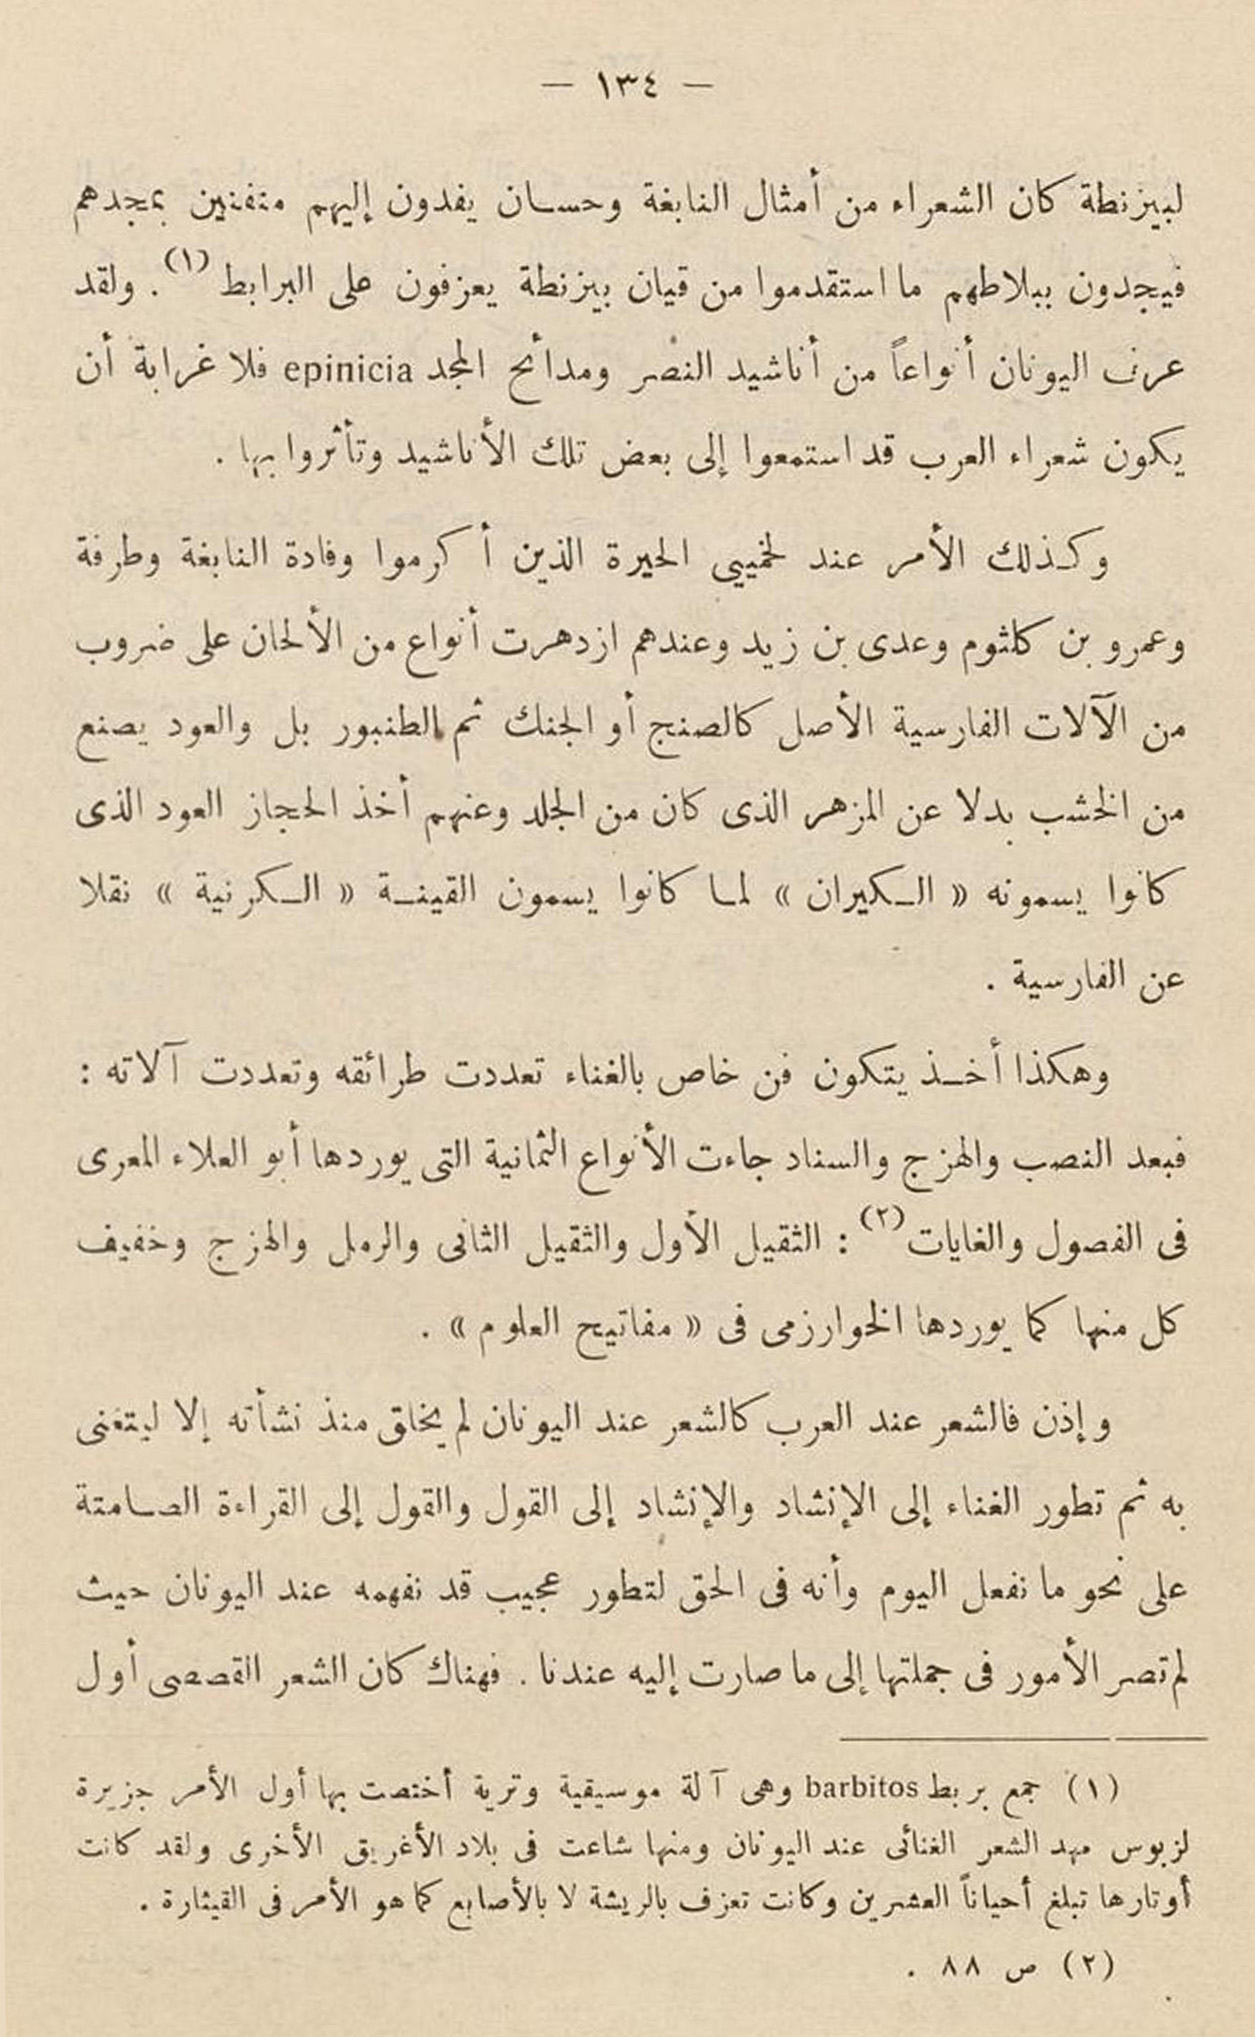 — ١٣٤ —
لبيزنطة كان الشعراء من أمثال النابغة وحسان يفدون إليهم متغنين بمجدهم
فيجدون ببلاطهم ما استقدموا من قيان بيزنطة يعزفون على البرابط (١) . ولقد
عرف اليونان أنواعاً من أناشيد النصر ومدائح المجد epinicia فلا غرابة أن
يكون شعراء العرب قد استمعوا إلى بعض تلك الأناشيد وتأثروا بها .
وكذلك الأمر عند لخميي الحيرة الذين أكرموا وفادة النابغة وطرفة
وعمرو بن كلثوم وعدى بن زيد وعندهم ازدهرت أنواع من الألحان على ضروب
من الآلات الفارسية الأصل كالصنج أو الجنك ثم الطنبور بل والعود يصنع
من الخشب بدلا عن المزهر الذى كان من الجلد وعنهم أخذ الحجاز العود الذى
كانوا يسمونه « الكيران » لما كانوا يسمون القينة « الكرنية » نقلا
عن الفارسية .
وهكذا أخذ يتكون فن خاص بالغناء تعددت طرائقه وتعددت آلاته :
فبعد النصب والهزج والسناد جاءت الأنواع الثمانية التى يوردها أبو العلاء المعرى
فى الفصول والغايات (٢) : الثقيل الأول والثقيل الثانى والرمل والهزج وخفيف
كل منها كما يوردها الخوارزمى فى « مفاتيح العلوم » .
وإذن فالشعر عند العرب كالشعر عند اليونان لم يخلق منذ نشأته إلا ليتغنى
به ثم تطور الغناء إلى الإنشاد والإنشاد إلى القول والقول إلى القراءة الصامتة
على نحو ما نفعل اليوم وأنه فى الحق لتطور عجيب قد نفهمه عند اليونان حيث
لم تصر الأمور فى جملتها إلى ما صارت إليه عندنا . فهناك كان الشعر القصصى أول
(١) جمع بربط barbitos وهى آلة موسيقية وترية أختصت بها أول الأمر جزيرة
لزبوس مهد الشعر الغنائى عند اليونان ومنها شاعت فى بلاد الأغريق الأخرى ولقد كانت
أوتارها تبلغ أحياناً العشرين وكانت تعزف بالريشة لا بالأصابع كما هو الأمر فى القيثارة .
(٢) ص ٨٨ .